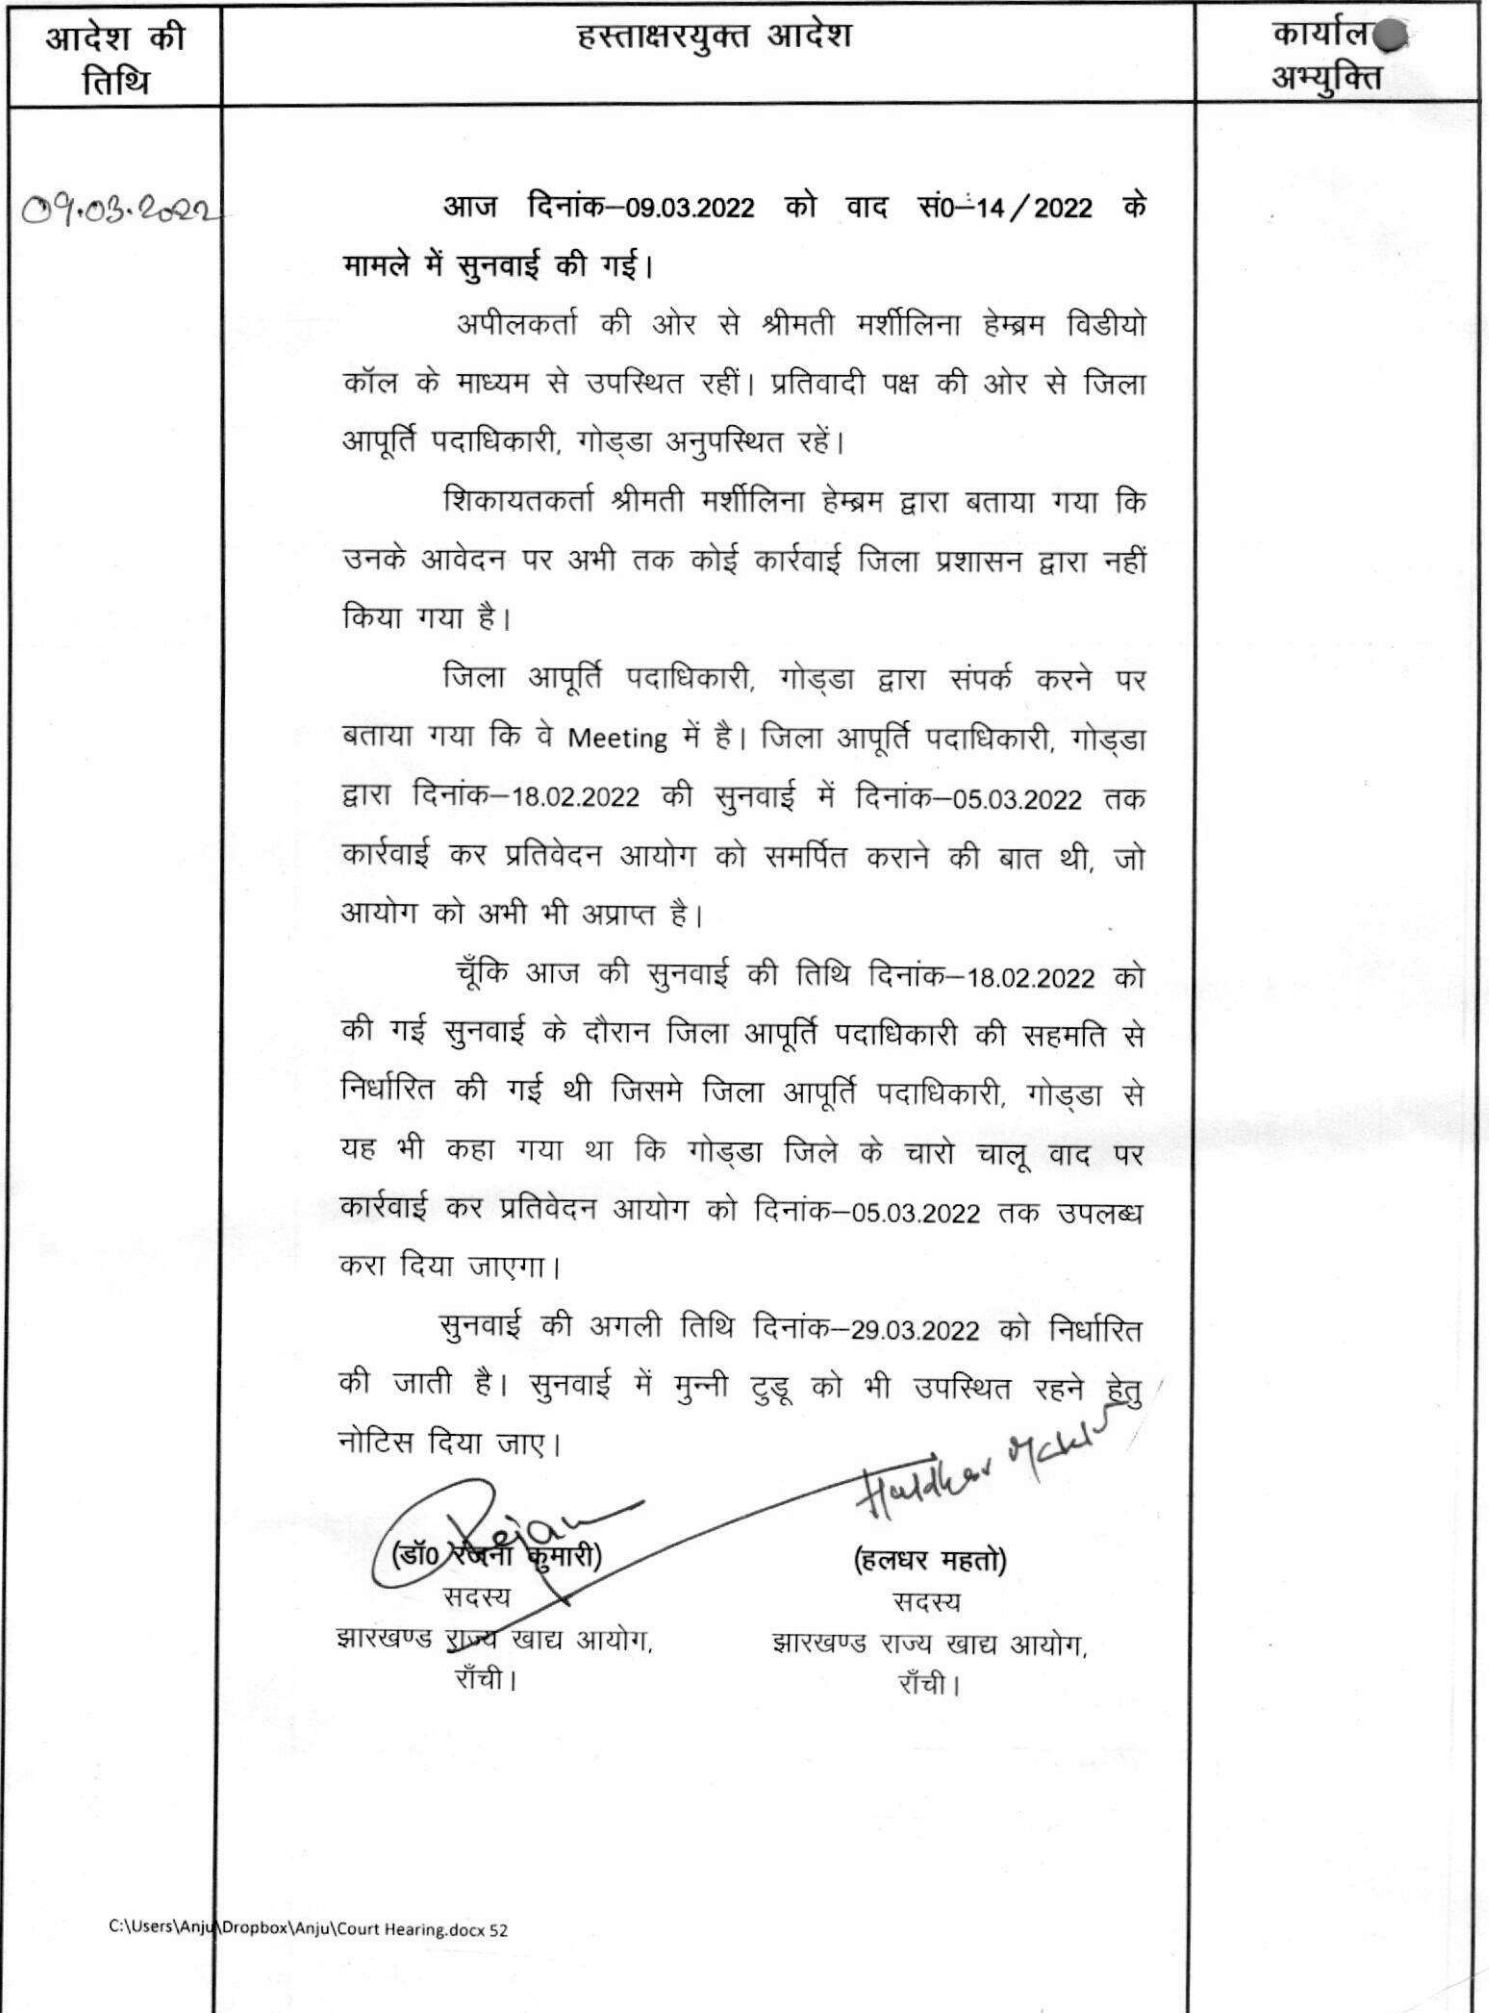 आदेश की
तिथि
हस्ताक्षरयुक्त आदेश
कार्याल
अभ्युक्ति
09.03.2022
आज दिनांक–09.03.2022 को वाद सं0–14/2022 के
मामले में सुनवाई की गई।
अपीलकर्ता की ओर से श्रीमती मर्शीलिना हेम्ब्रम विडीयो
कॉल के माध्यम से उपस्थित रहीं। प्रतिवादी पक्ष की ओर से जिला
आपूर्ति पदाधिकारी, गोड्डा अनुपस्थित रहें।
शिकायतकर्ता श्रीमती मर्शीलिना हेम्ब्रम द्वारा बताया गया कि
उनके आवेदन पर अभी तक कोई कार्रवाई जिला प्रशासन द्वारा नहीं
किया गया है।
जिला आपूर्ति पदाधिकारी, गोड्डा द्वारा संपर्क करने पर
बताया गया कि वे Meeting में है। जिला आपूर्ति पदाधिकारी, गोड्डा
द्वारा दिनांक–18.02.2022 की सुनवाई में दिनांक–05.03.2022 तक
कार्रवाई कर प्रतिवेदन आयोग को समर्पित कराने की बात थी, जो
आयोग को अभी भी अप्राप्त है।
चूँकि आज की सुनवाई की तिथि दिनांक–18.02.2022 को
की गई सुनवाई के दौरान जिला आपूर्ति पदाधिकारी की सहमति से
निर्धारित की गई थी जिसमे जिला आपूर्ति पदाधिकारी, गोड्डा से
यह भी कहा गया था कि गोड्डा जिले के चारो चालू वाद पर
कार्रवाई कर प्रतिवेदन आयोग को दिनांक–05.03.2022 तक उपलब्ध
करा दिया जाएगा।
सुनवाई की अगली तिथि दिनांक–29.03.2022 को निर्धारित
की जाती है। सुनवाई में मुन्नी टुडू को भी उपस्थित रहने हेतु
नोटिस दिया जाए।
Haldhar Mahto
(डॉ0 रंजना कुमारी)
(हलधर महतो)
सदस्य
सदस्य
झारखण्ड राज्य खाद्य आयोग,
झारखण्ड राज्य खाद्य आयोग,
राँची।
राँची।
C:\Users\Anju\Dropbox\Anju\Court Hearing.docx 52